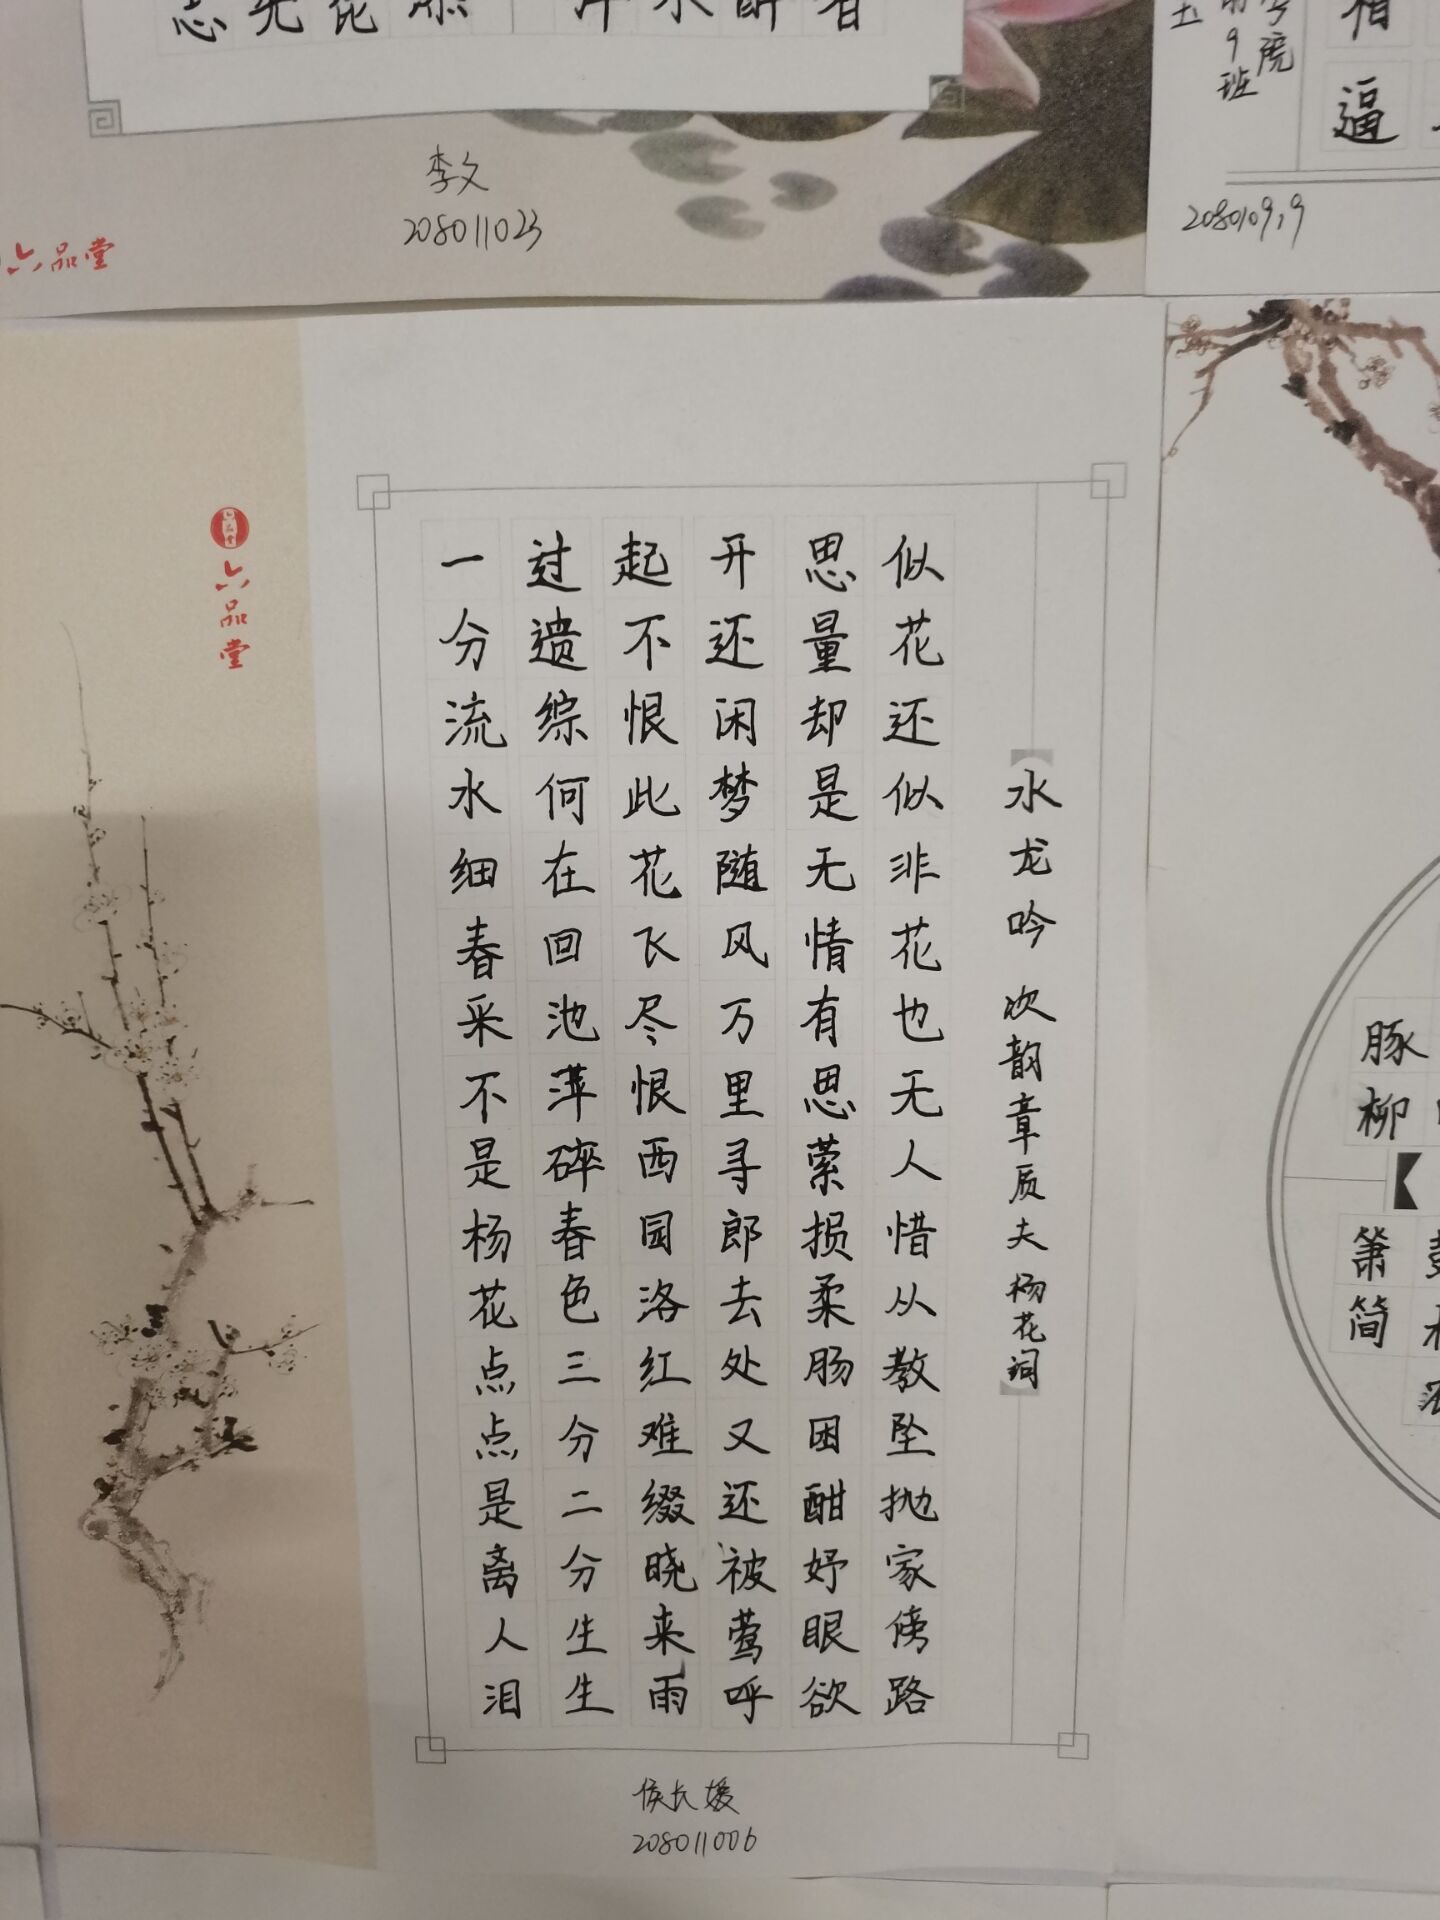 李文
208011023
9班
逼
2080109.9
六品堂
六品堂
水龙吟 次韵章质夫杨花词
似花还似非花也无人惜从教坠抛家傍路
思量却是无情有思萦损柔肠困酣妤眼欲
开还闲梦随风万里寻郎去处又还被莺呼
起不恨此花飞尽恨西园洛红难缀晓来雨
过遗综何在回池萍碎春色三分二分生生
一分流水细春采不是杨花点点是离人泪
侯长媛
208011006
豚
柳
箫
简